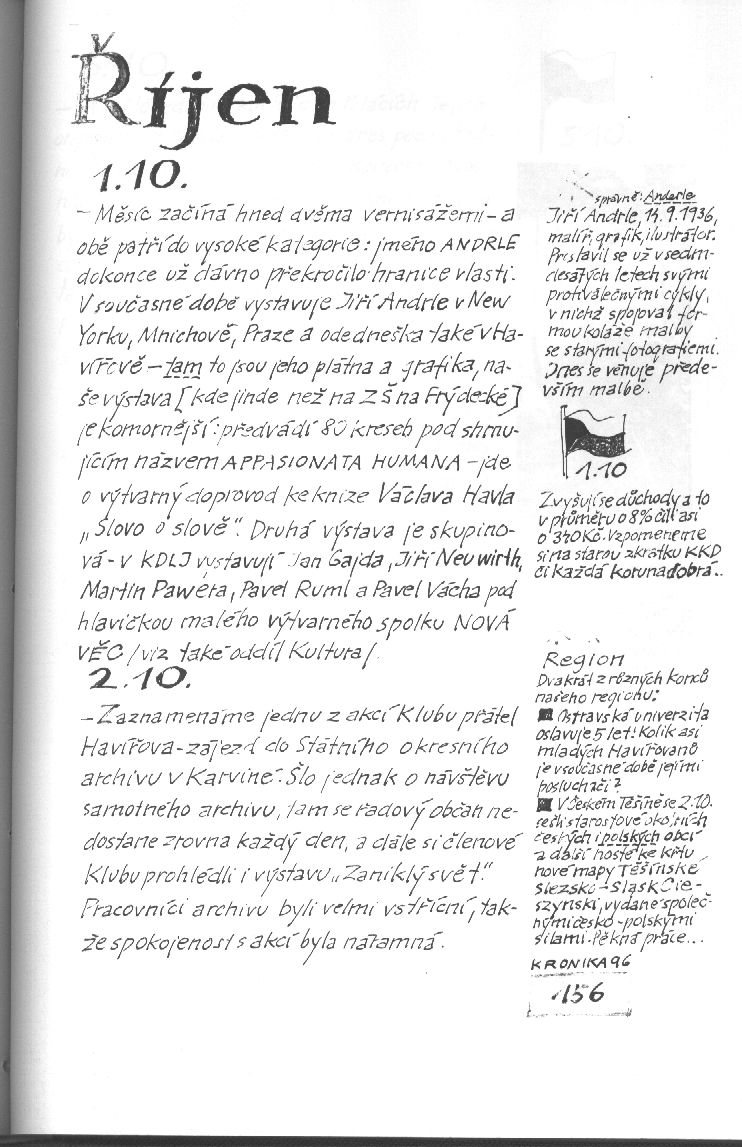 Říjen
1.10.
– Měsíc začíná hned dvěma vernisážemi – a
obě patří do vysoké kategorie: jméno ANDRLE
dokonce už dávno překročilo hranice vlasti.
V současné době vystavuje Jiří Andrle v New
Yorku, Mnichově, Praze a ode dneška také v Ha-
vířově – tam to jsou jeho plátna a grafika, na-
še výstava [kde jinde než na ZŠ na Frýdecké]
je komornější: předvádí 80 kreseb pod shrnu-
jícím názvem APPASIONATA HUMANA – jde
o výtvarný doprovod ke knize Václava Havla
„Slovo o slově“. Druhá výstava je skupino-
vá – v KDLJ vystavují Jan Gajda, Jiří Neuwirth,
Martin Pawera, Pavel Ruml a Pavel Vácha pod
hlavičkou malého výtvarného spolku NOVÁ
VĚC /viz také oddíl Kultura/.
2.10.
– Zaznamenáme jednu z akcí Klubu přátel
Havířova – zájezd do Státního okresního
archivu v Karviné. Šlo jednak o návštěvu
samotného archivu, tam se řadový občan ne-
dostane zrovna každý den, a dále si členové
Klubu prohlédli i výstavu „Zaniklý svět“.
Pracovníci archivu byli velmi vstřícní, tak-
že spokojenost s akcí byla náramná.
správně: Anderle
Jiří Andrle, 14.9.1936,
malíř, grafik, ilustrátor.
Proslavil se už v sedm-
desátých letech svými
protiválečnými cykly,
v nichž spojoval for-
mou koláže malby
se starými fotografiemi.
Dnes se věnuje přede-
vším malbě.
1.10
Zvyšují se důchody a to
v průměru o 8% čili asi
o 340 Kč. Vzpomeneme
si na starou zkratku KKD
či každá koruna dobrá..
Region
Dvakrát z různých konců
našeho regionu:
Ostravská univerzita
oslavuje 5 let! Kolik asi
mladých Havířovanů
je v současné době jejími
posluchači?
V Českém Těšíně se 2.10.
sešli starostové okolních
českých i polských obcí
a další hosté ke křtu
nové mapy Těšínské
Slezsko – Śląsk Cie-
szyński, vydané společ-
nými česko-polskými
silami. Pěkná práce...
KRONIKA 96
156